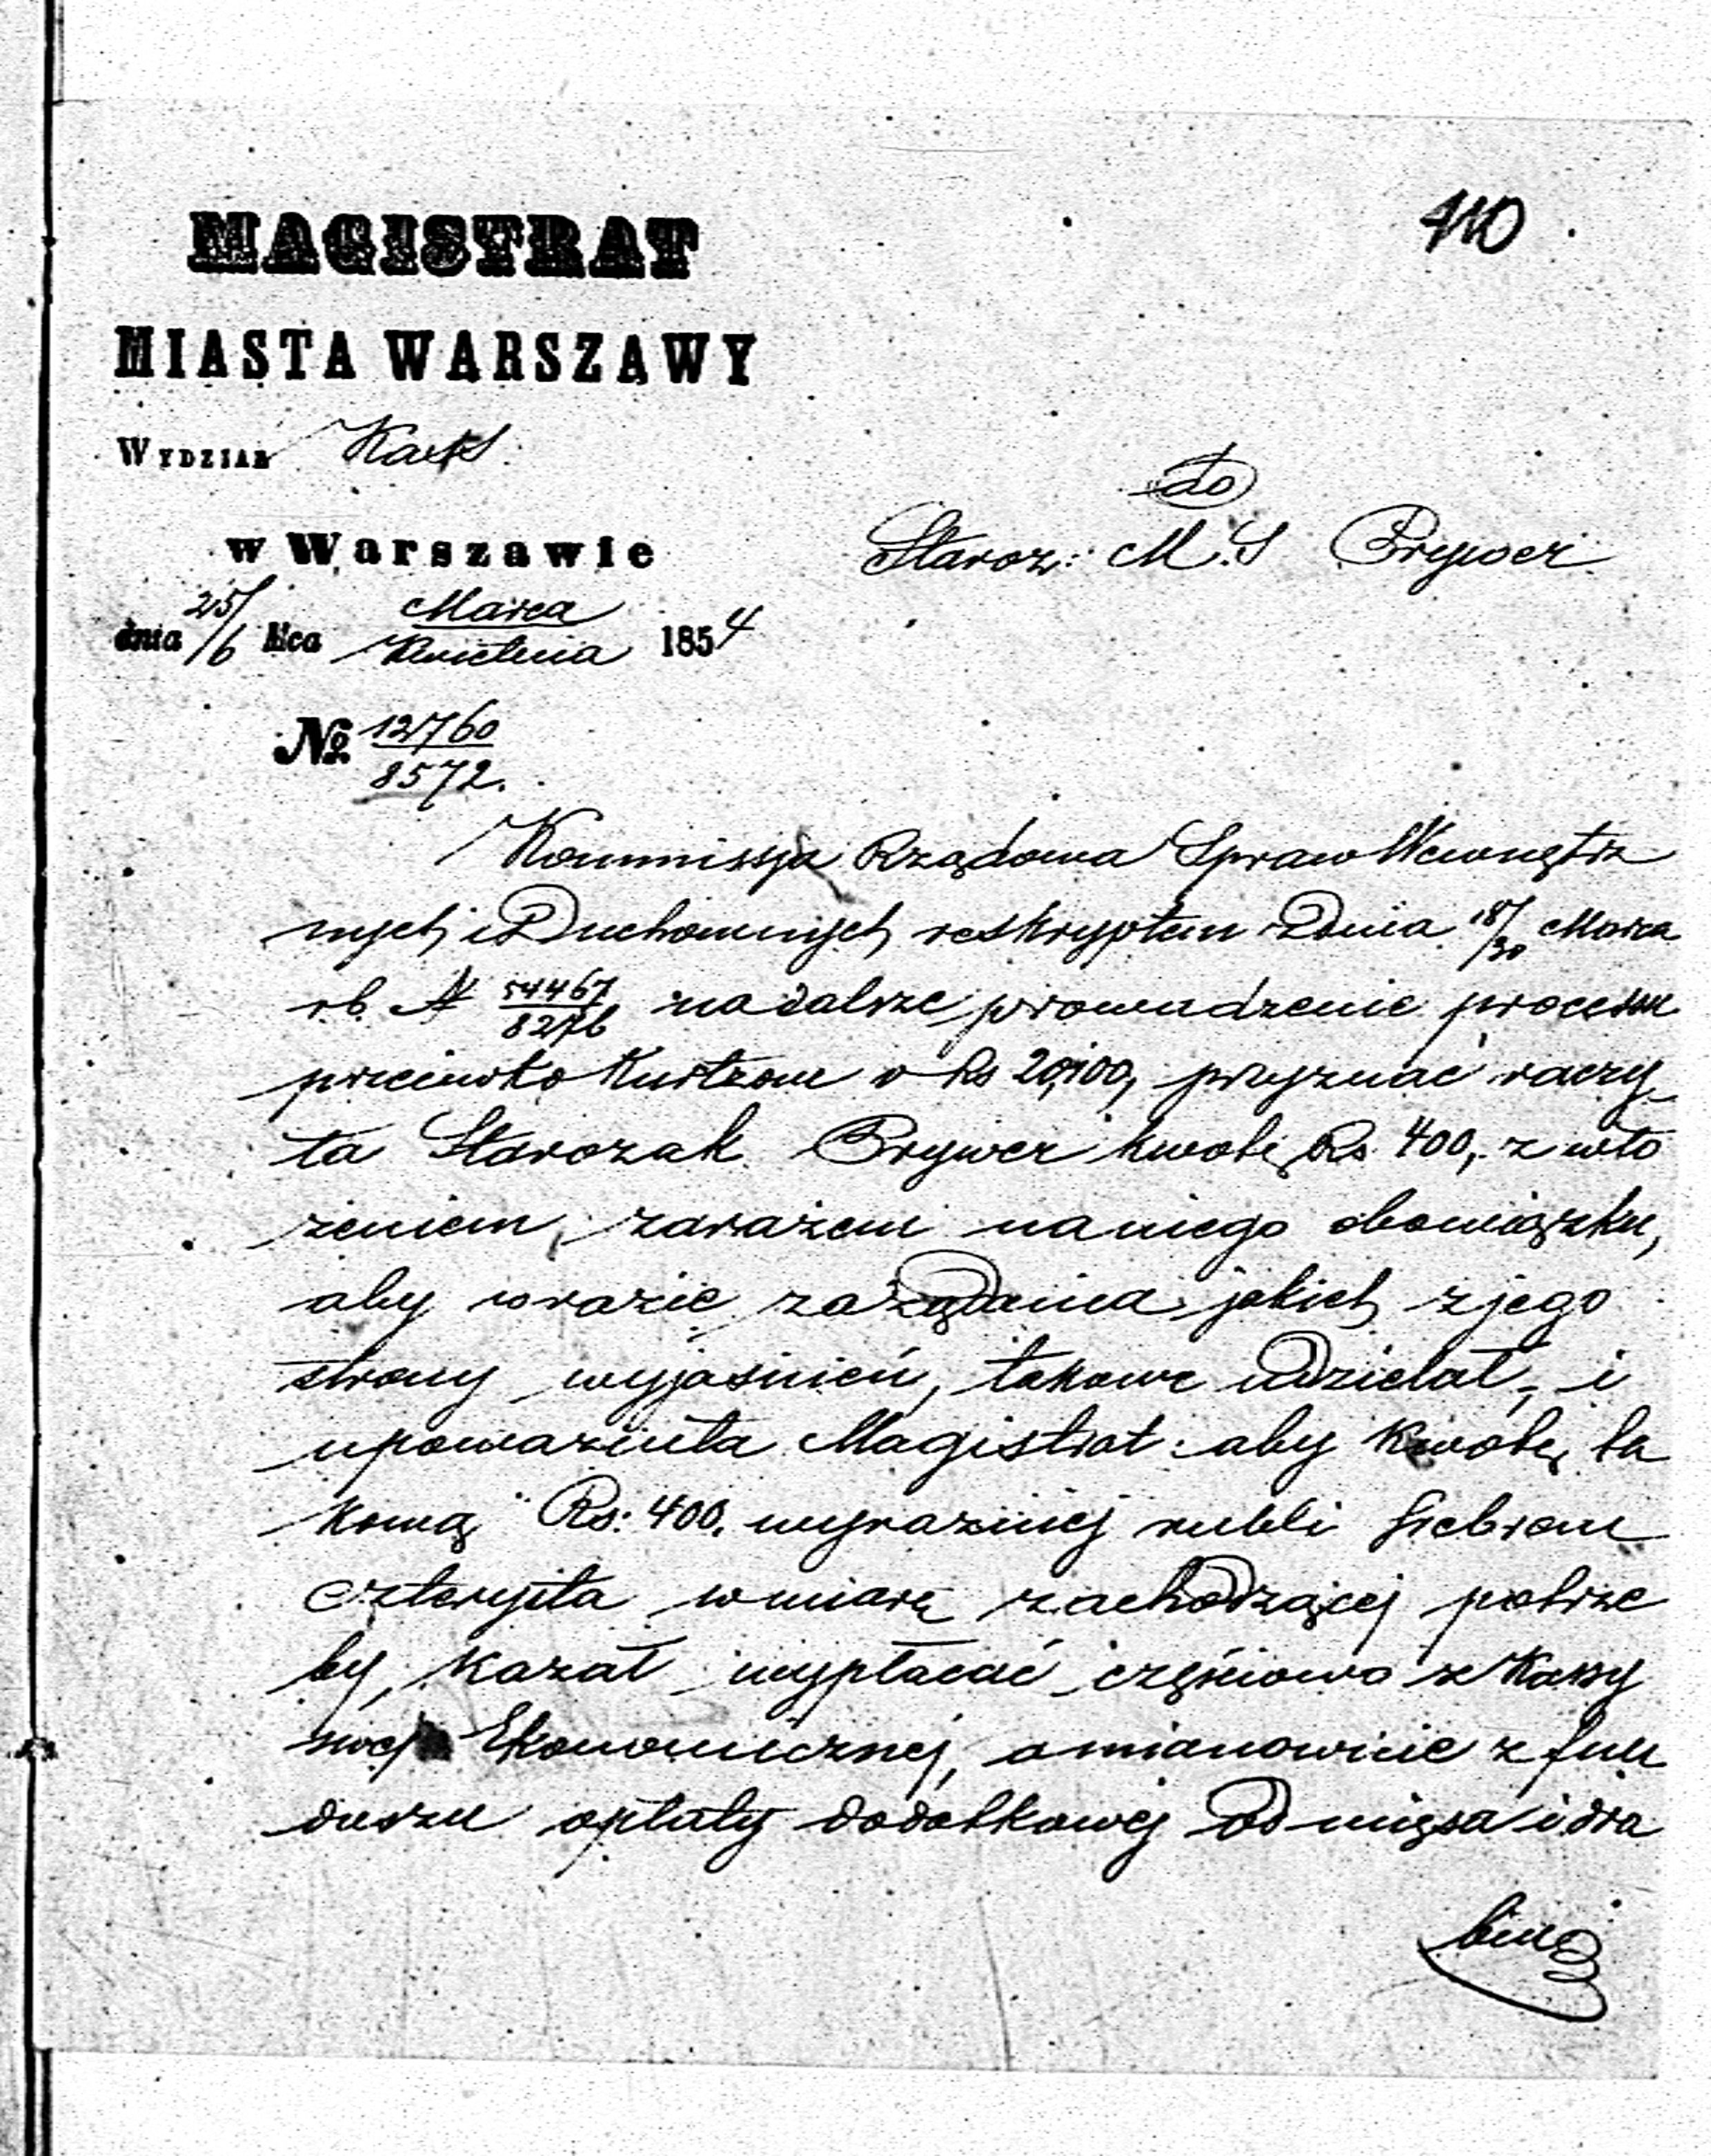 110
MAGISTRAT
MIASTA WARSZAWY
WYDZIAŁ
do
Staroz: M. S Brywer
w Warszawie
dnia 25/6 Mca Marca/Kwietnia 1854
№ 12760/8572.
Kommissja Rządowa Spraw Wewnętrz
nych i Duchownych reskryptem z Dnia 18/30 Marca
rb. N 54467/8276 na dalsze prowadzenie processu
przeciwko Kurtzom o Rs 20,100, przyznać raczy
ła Starozak. Brywer kwotę Rs. 400, z wło
żeniem zarazem na niego obowiązku,
aby w razie zażądania jakich z jego
strony wyjaśnień, takowe udzielał, i
upoważniła Magistrat aby kwotę ta
kową Rs: 400. wyraźniej rubli srebrem
czterysta w miarę zachodzącej potrze
by, kazał wypłacać częściowo z Kassy
swej Ekonomicznej, a mianowicie z fun
duszu opłaty dodatkowej od mięsa i dro
biu